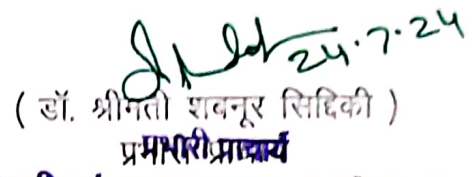 24.7.24
( डॉ. श्रीमती शबनूर सिद्दिकी )
प्रभारी प्राचार्य